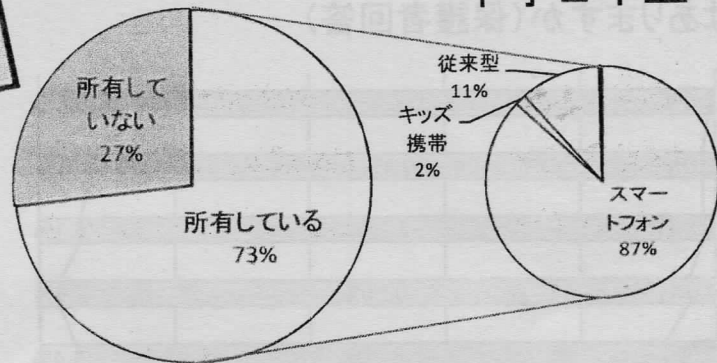 所有して
いない
27%
所有している
73%
従来型
11%
キッズ
携帯
2%
スマー
トフォン
87%